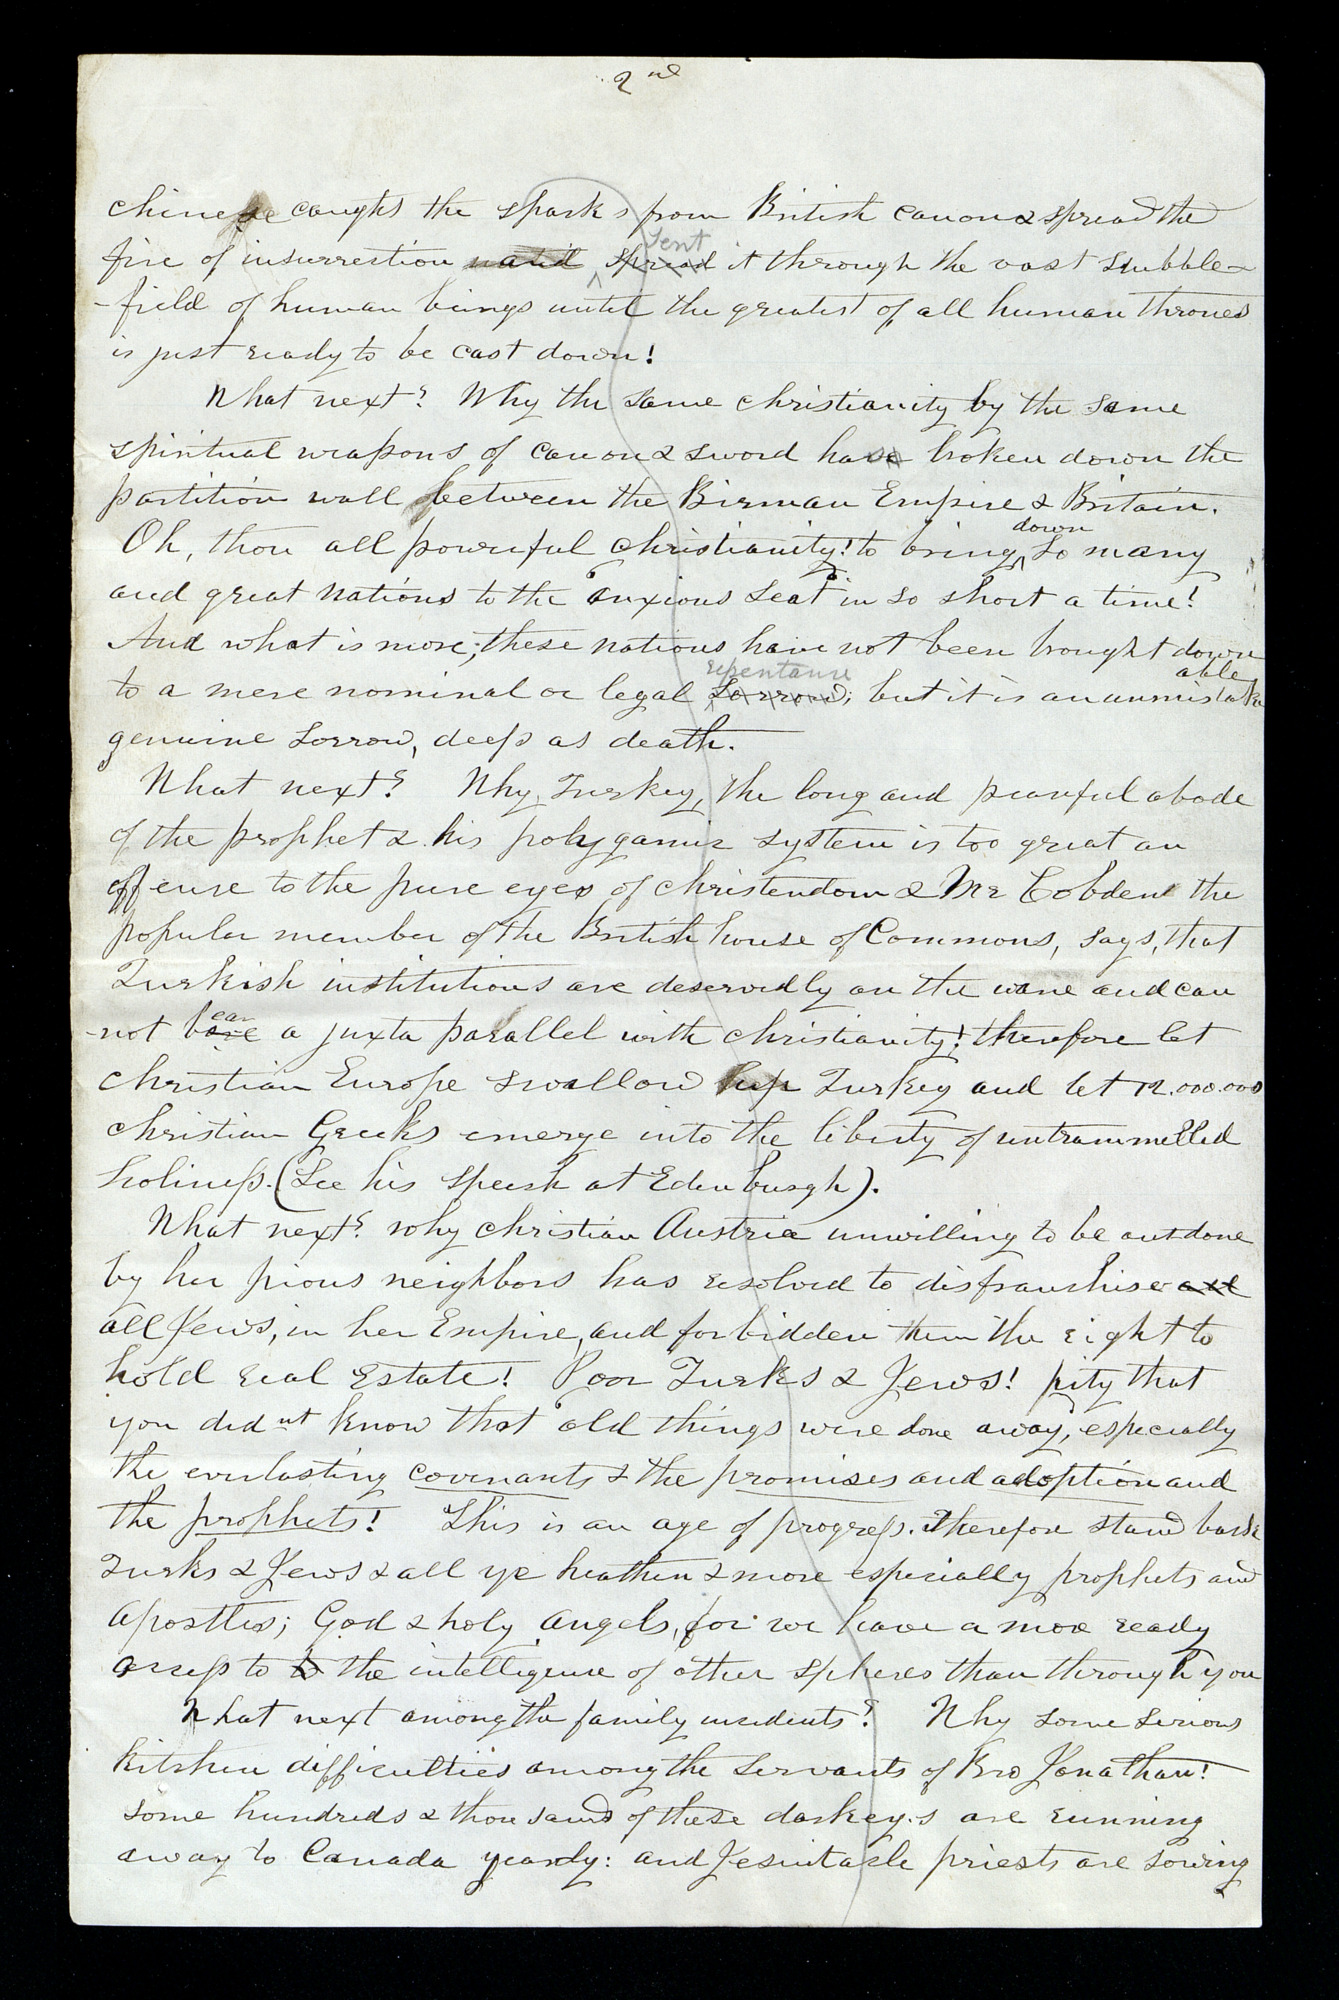 2nd
chinese caught the sparks from British canon & spread the
fire of insurrection and spread sent it through the vast stubble-
-field of human beings until the greatest of all human thrones
is just ready to be cast down!
What next? Why the same christianity by the same
spiritual weapons of canon & sword have broken down the
partition wall between the Birman Empire & Britain.
Oh, thou all powerful christianity! to bring down so many
and great nations to the "anxious seat" in so short a time!
And what is more; these nations have not been brought down
to a mere nominal or legal sorrow; repentance but it is an unmistakeable
genuine sorrow, deep as death.
What next? Why, Turkey, the long and peaceful abode
of the prophet & his polygamic system is too great an
offence to the pure eyes of christendom & Mr Cobden the
popular member of the British house of Commons, says, that
Turkish institutions are deservedly on the wane and can
-not bare ear a juxta parallel with christianity! therefore let
christian Europe swallow up Turkey and let 12.000.000
christian Greeks emerge into the liberty of untrammelled
holiness. (See his speech at Edenburgh).
What next? why christian Austria unwilling to be outdone
by her pious neighbors has resolved to disfranchise all
all Jews, in her Empire, and forbidden them the right to
hold real Estate! Poor Turks & Jews! pity that
you didnt know that "old things were done away," especially
the everlasting covenants & the promises and adoption and
the prophets! This is an age of progress. Therefore stand back
Turks & Jews & all ye heathen & more especially prophets and
apostles; God & holy angels, for we have a more ready
access to to the intelligence of other spheres than through you
What next among the family incidents? Why some serious
kitchen difficulties among the servants of Bro Jonathan!
some hundreds & thousand of these darkey.s are running
away to Canada yearly: and Jesuitacle priests are sowing